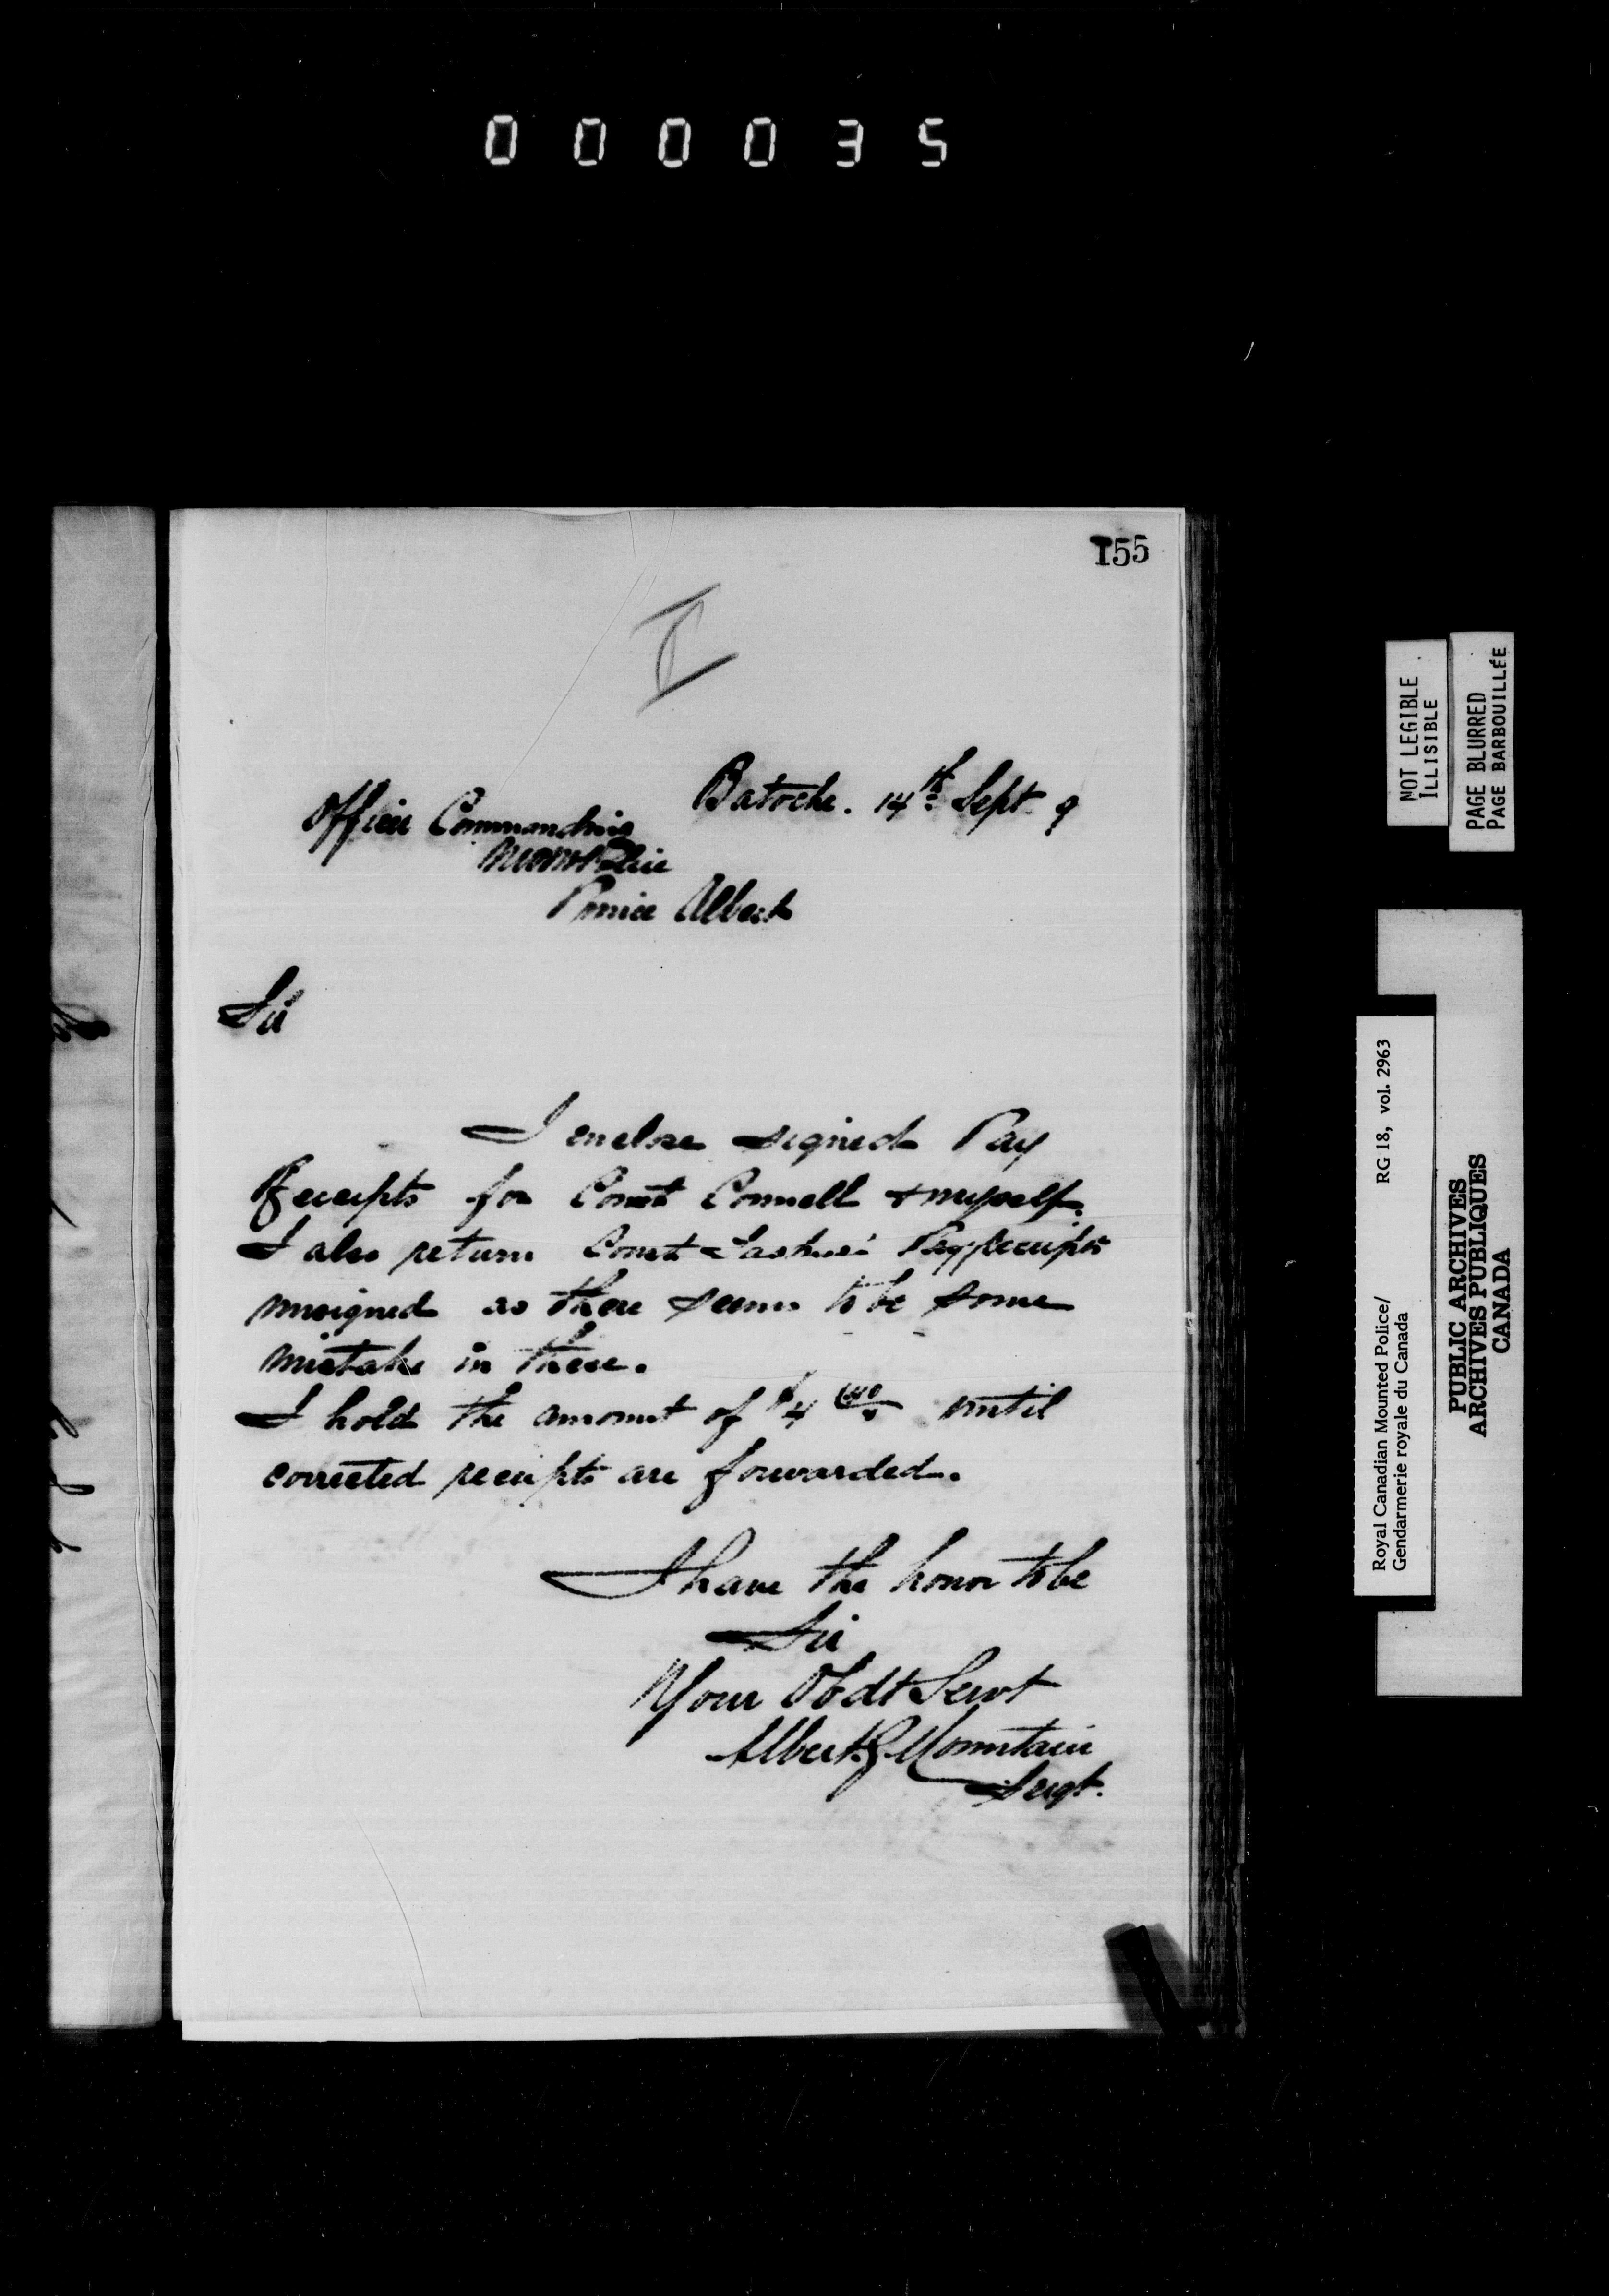 000035
155
I
Batoche. 14th Sept. 9
Officer Commanding
Prince Albert
Sir
I enclose signed Pay
Receipts for Const Connell & myself.
I also return Const Pay Receipts
unsigned as there seems to be some
mistake in these.
I hold the amount of $4 until
corrected receipts are forwarded.
I have the honor to be
Sir
Your Obdt Servt
Albert Mountain
Sergt.
NOT LEGIBLE
ILLISIBLE
PAGE BLURRED
PAGE BARBOUILLÉE
Royal Canadian Mounted Police/ RG 18, vol. 2963
Gendarmerie royale du Canada
PUBLIC ARCHIVES
ARCHIVES PUBLIQUES
CANADA